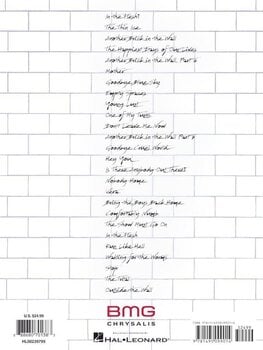 In the Flesh?
The Thin Ice
Another Brick in the Wall
The Happiest Days of Our Lives
Another Brick in the Wall Part 2
Mother
Goodbye Blue Sky
Empty Spaces
Young Lust
One of My Turns
Don't Leave Me Now
Another Brick in the Wall Part 3
Goodbye Cruel World
Hey You
Is There Anybody Out There?
Nobody Home
Vera
Bring the Boys Back Home
Comfortably Numb
The Show Must Go On
In the Flesh
Run Like Hell
Waiting for the Worms
Stop
The Trial
Outside the Wall
BMG
CHRYSALIS
HAL•LEONARD®
U.S. $24.99
HL00239799
52499